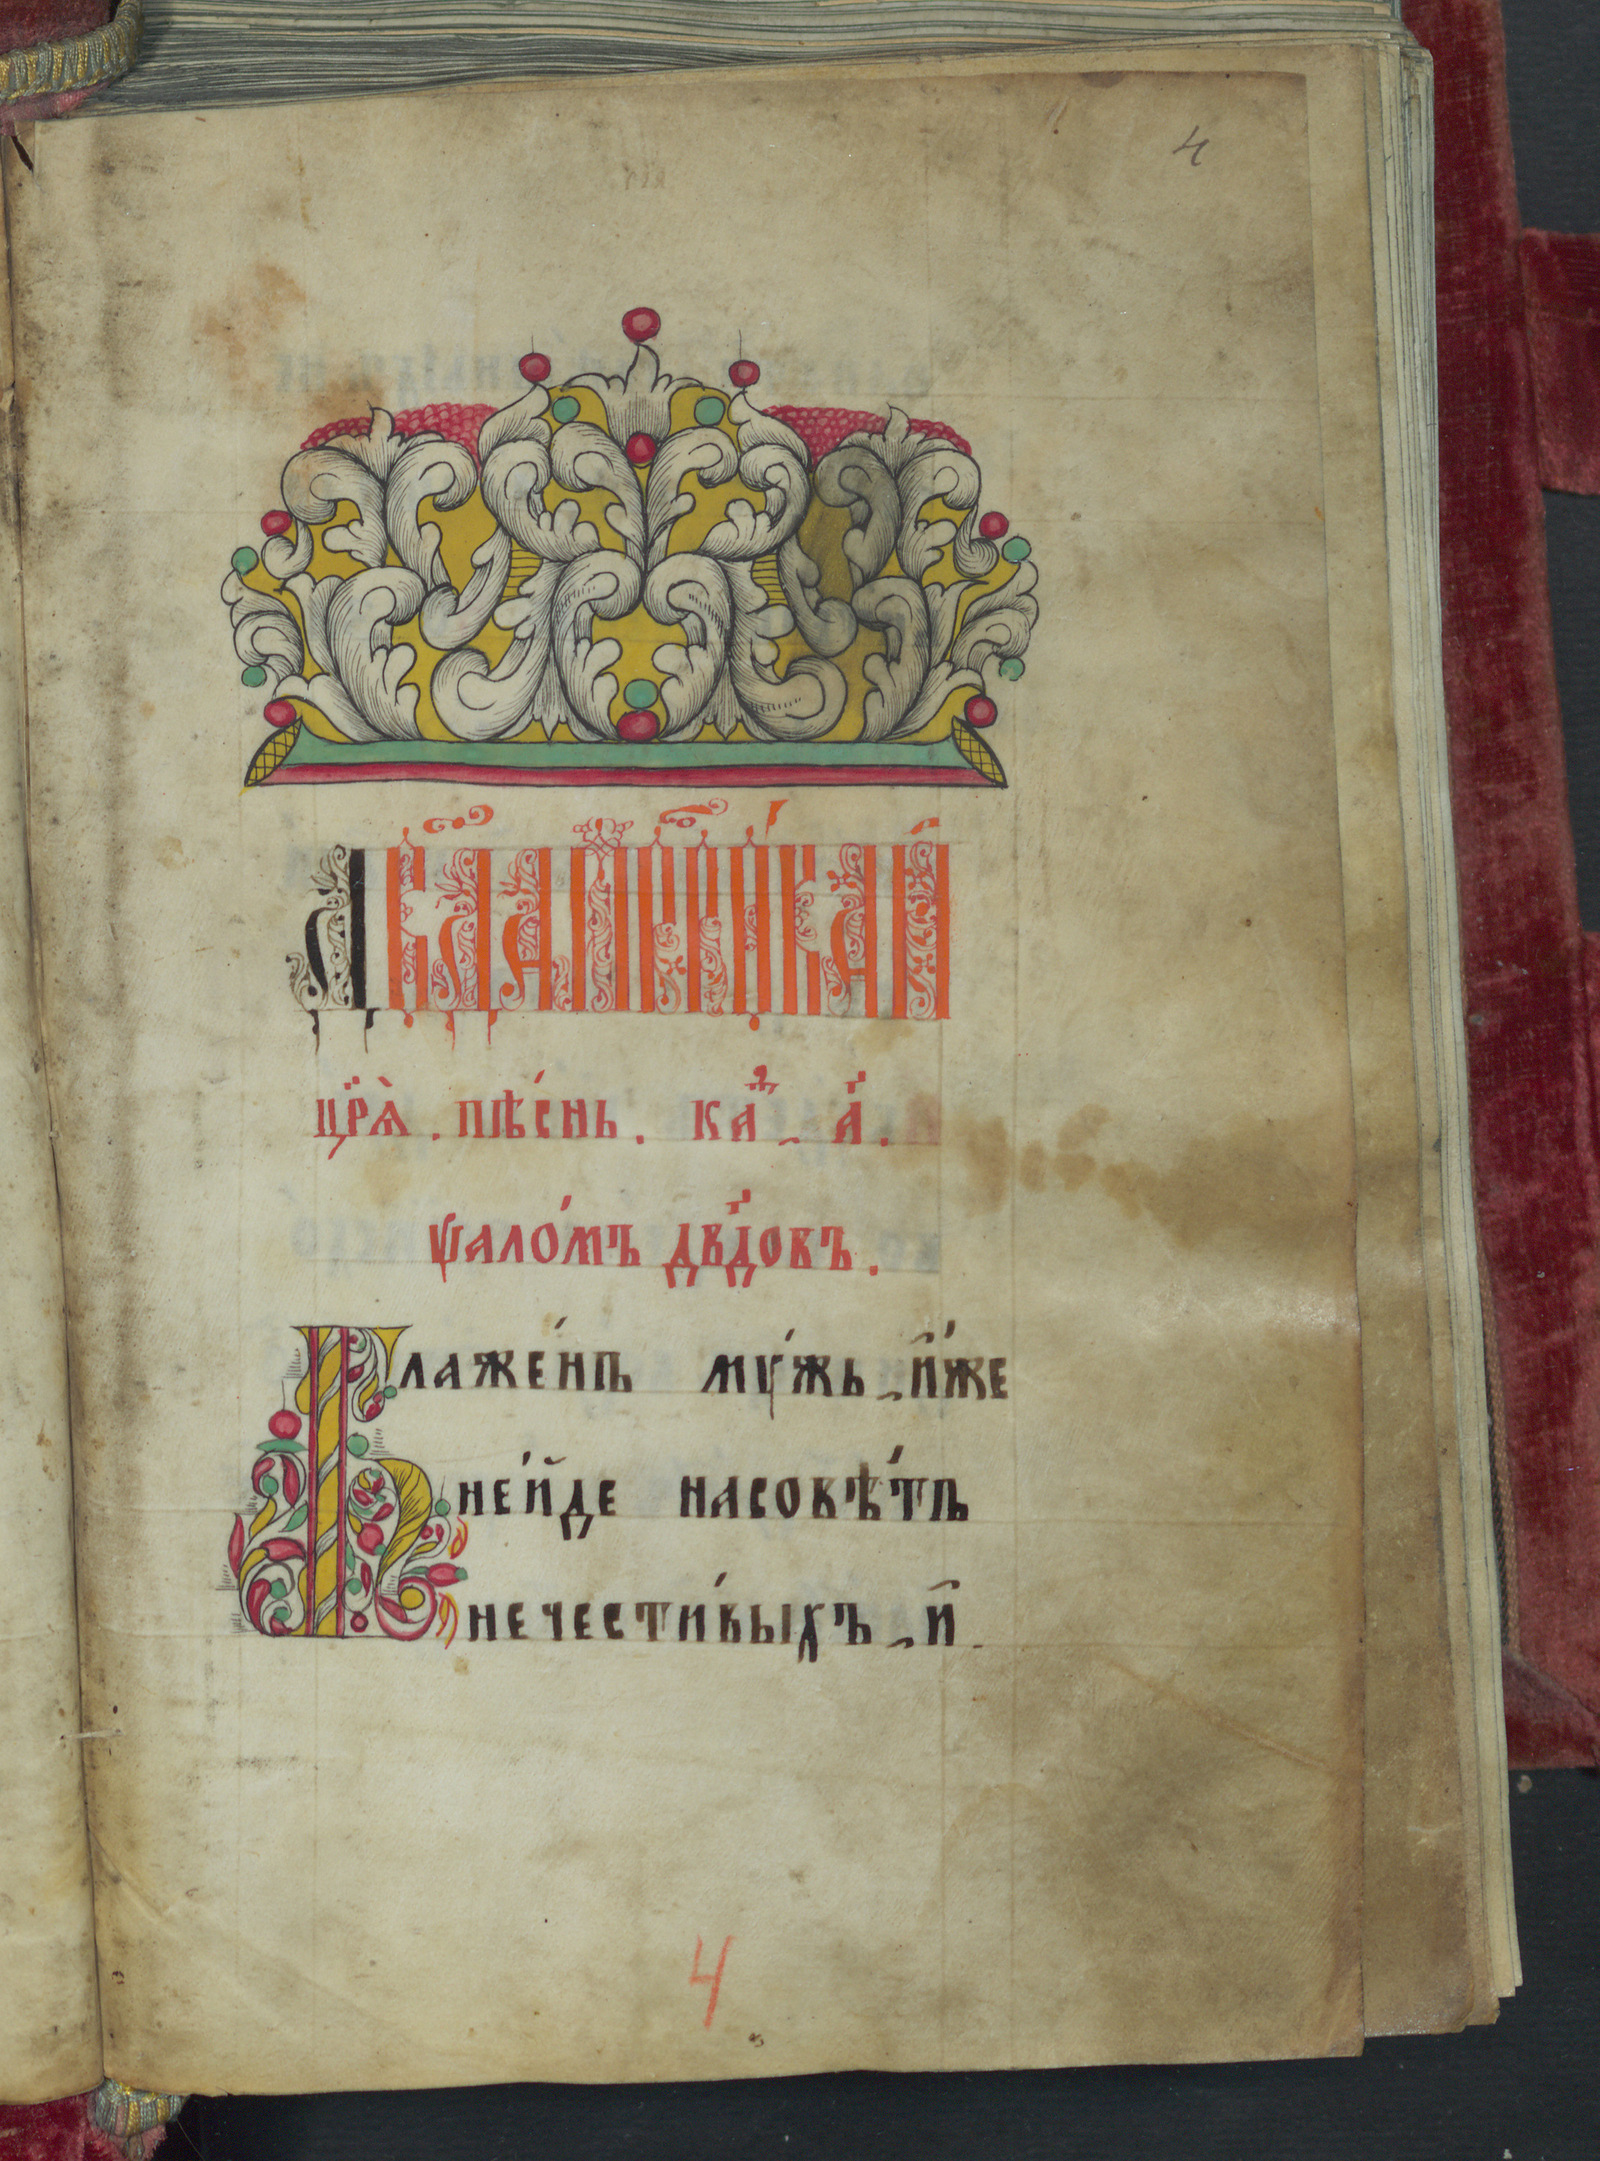 4
Двда прⷪ҇рка и
цр҃ѧ̀ . пѣ́снь . каѳ҇ . а҃ .
ѱало́мъ дв҃довъ .
Блаже́нъ му́жь и҆́же
не и́де на совѣ́тъ
нечести́выхъ и҆
4